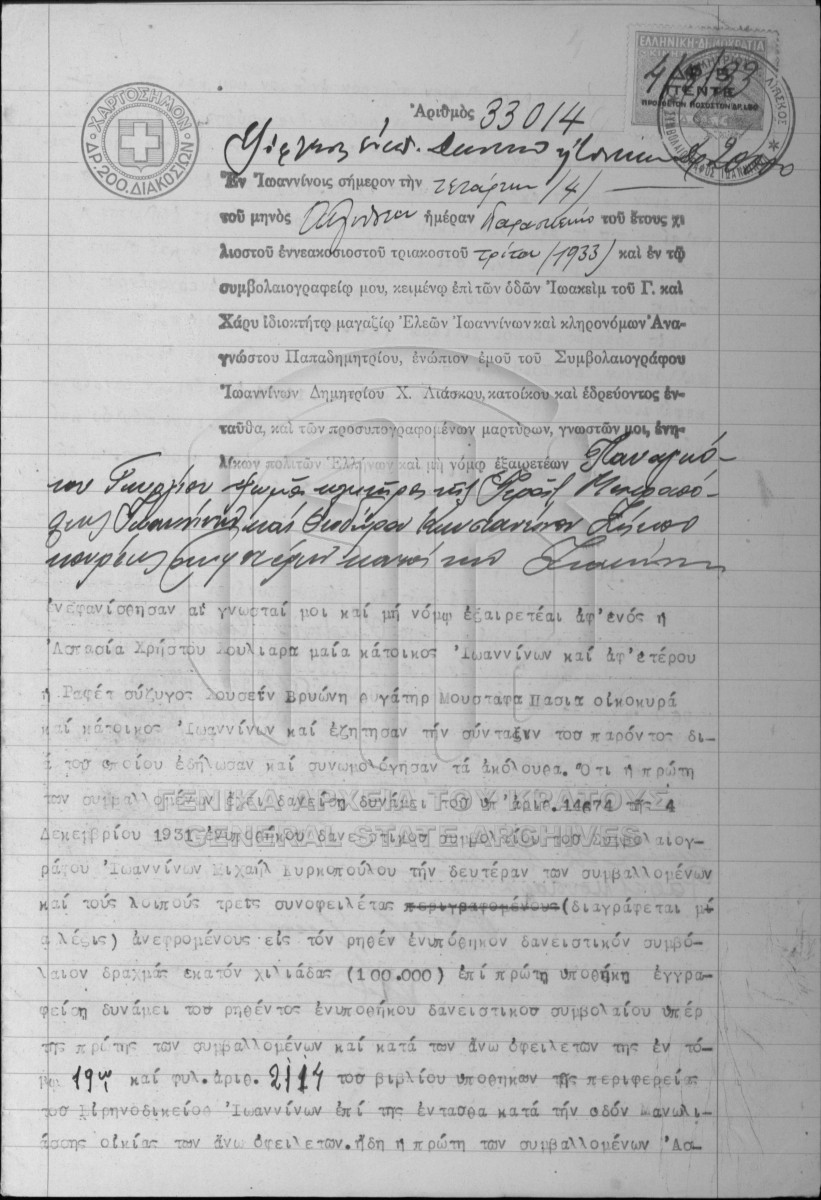 ΧΑΡΤΟΣΗΜΟΝ
ΔΡ.200.ΔΙΑΚΟΣΙΩΝ
ΕΛΛΗΝΙΚΗ ΔΗΜΟΚΡΑΤΙΑ
ΠΕΝΤΕ
4/8/33
Ἀριθμὸς 33014
Ἐν Ἰωαννίνοις σήμερον τὴν τετάρτην /4/
τοῦ μηνὸς ἡμέραν Παρασκευὴν τοῦ ἔτους χι
λιοστοῦ ἐννεακοσιοστοῦ τριακοστοῦ τρίτου (1933) καὶ ἐν τῷ
συμβολαιογραφείῳ μου, κειμένῳ ἐπὶ τῶν ὁδῶν Ἰωακεὶμ τοῦ Γ. καὶ
Χάρυ ἰδιοκτήτῳ μαγαζίῳ Ἐλεῶν Ἰωαννίνων καὶ κληρονόμων Ἀνα-
γνώστου Παπαδημητρίου, ἐνώπιον ἐμοῦ τοῦ Συμβολαιογράφου
Ἰωαννίνων Δημητρίου Χ. Λιάσκου, κατοίκου καὶ ἑδρεύοντος ἐν-
ταῦθα, καὶ τῶν προσυπογραφομένων μαρτύρων, γνωστῶν μοι, ἐνη-
λίκων πολιτῶν Ἑλλήνων καὶ μὴ νόμῳ ἐξαιρετέων Παναγιώ-
του Γεωργίου κλητῆρος τῆς Ἱερᾶς Μητροπό-
λεως Ἰωαννίνων καὶ Θεοδώρου Κωνσταντίνου
κουρέως
ἐνεφανίσθησαν αἱ γνωσταί μοι καί μή νόμῳ ἐξαιρετέαι ἀφ'ἑνός ἡ
Ἀσπασία Χρήστου Χουλιαρα μαία κάτοικος Ἰωαννίνων καί ἀφ'ἑτέρου
ἡ Ραφέτ σύζυγος Χουσεΐν Βρυώνη θυγάτηρ Μουσταφα Πασια οἰκοκυρά
καί κάτοικος Ἰωαννίνων καί ἐζήτησαν τήν σύνταξιν τοῦ παρόντος δι-
ά τοῦ ὁποίου ἐδήλωσαν καί συνωμολόγησαν τά ἀκόλουθα. Ὅτι ἡ πρώτη
τῶν συμβαλλομένων ἔχει δανείσῃ δυνάμει τοῦ ὑπ' ἀριθ. 14674 τῆς 4
ΓΕΝΙΚΑ ΑΡΧΕΙΑ ΤΟΥ ΚΡΑΤΟΥΣ
Δεκεμβρίου 1931 ἐνυποθήκου δανειστικοῦ συμβολαίου τοῦ Συμβολαιογ-
GENERAL STATE ARCHIVES
ράφου Ἰωαννίνων Μιχαήλ Κυρκοπούλου τήν δευτέραν τῶν συμβαλλομένων
καί τούς λοιπούς τρεῖς συνοφειλέτας περιγραφομένους (διαγράφεται μί
α λέξις) ἀνεφρομένους εἰς τόν ρηθέν ἐνυπόθηκον δανειστικόν συμβό-
λαιον δραχμάς ἑκατόν χιλιάδας (100.000) ἐπί πρώτῃ ὑποθήκῃ ἐγγρα-
φείσῃ δυνάμει τοῦ ρηθέντος ἐνυποθήκου δανειστικοῦ συμβολαίου ὑπέρ
τῆς πρώτης τῶν συμβαλλομένων καί κατά τῶν ἄνω ὀφειλετῶν της ἐν τό-
μῳ 19ῳ καί φυλ. ἀριθ. 2114 τοῦ βιβλίου ὑποθηκῶν τῆς περιφερείας
τοῦ Εἰρηνοδικείου Ἰωαννίνων ἐπί τῆς ἐνταῦθα κατά τήν ὁδόν Μανωλι-
άσσης οἰκίας τῶν ἄνω ὀφειλετῶν. ἤδη ἡ πρώτη τῶν συμβαλλομένων Ἀσ-